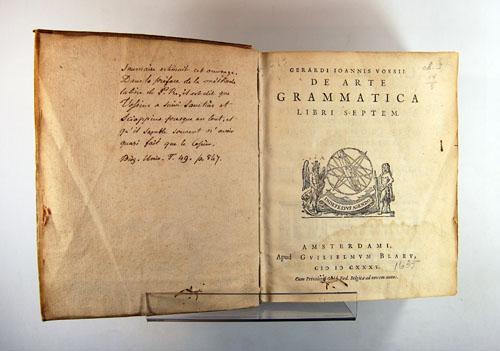 Saumaise estimait cet ouvrage.
Dans la préface de la méthode
latine de P. R., il est dit que
Vossius a suivi Sanctius et
Scioppius presque en tout, et
qu'il semble souvent n'avoir
quasi fait que le
Biog. Univ. T. 49. p. 547.
GERARDI IOANNIS VOSSII
DE ARTE
GRAMMATICA
LIBRI SEPTEM
INDEFESSUS AGENDO
AMSTERDAMI,
Apud GUILIELMUM BLAEU,
CIƆ IƆ CXXXV.
1635
Cum Privilegio Ord. Fed. Belgicæ ad novem annos.